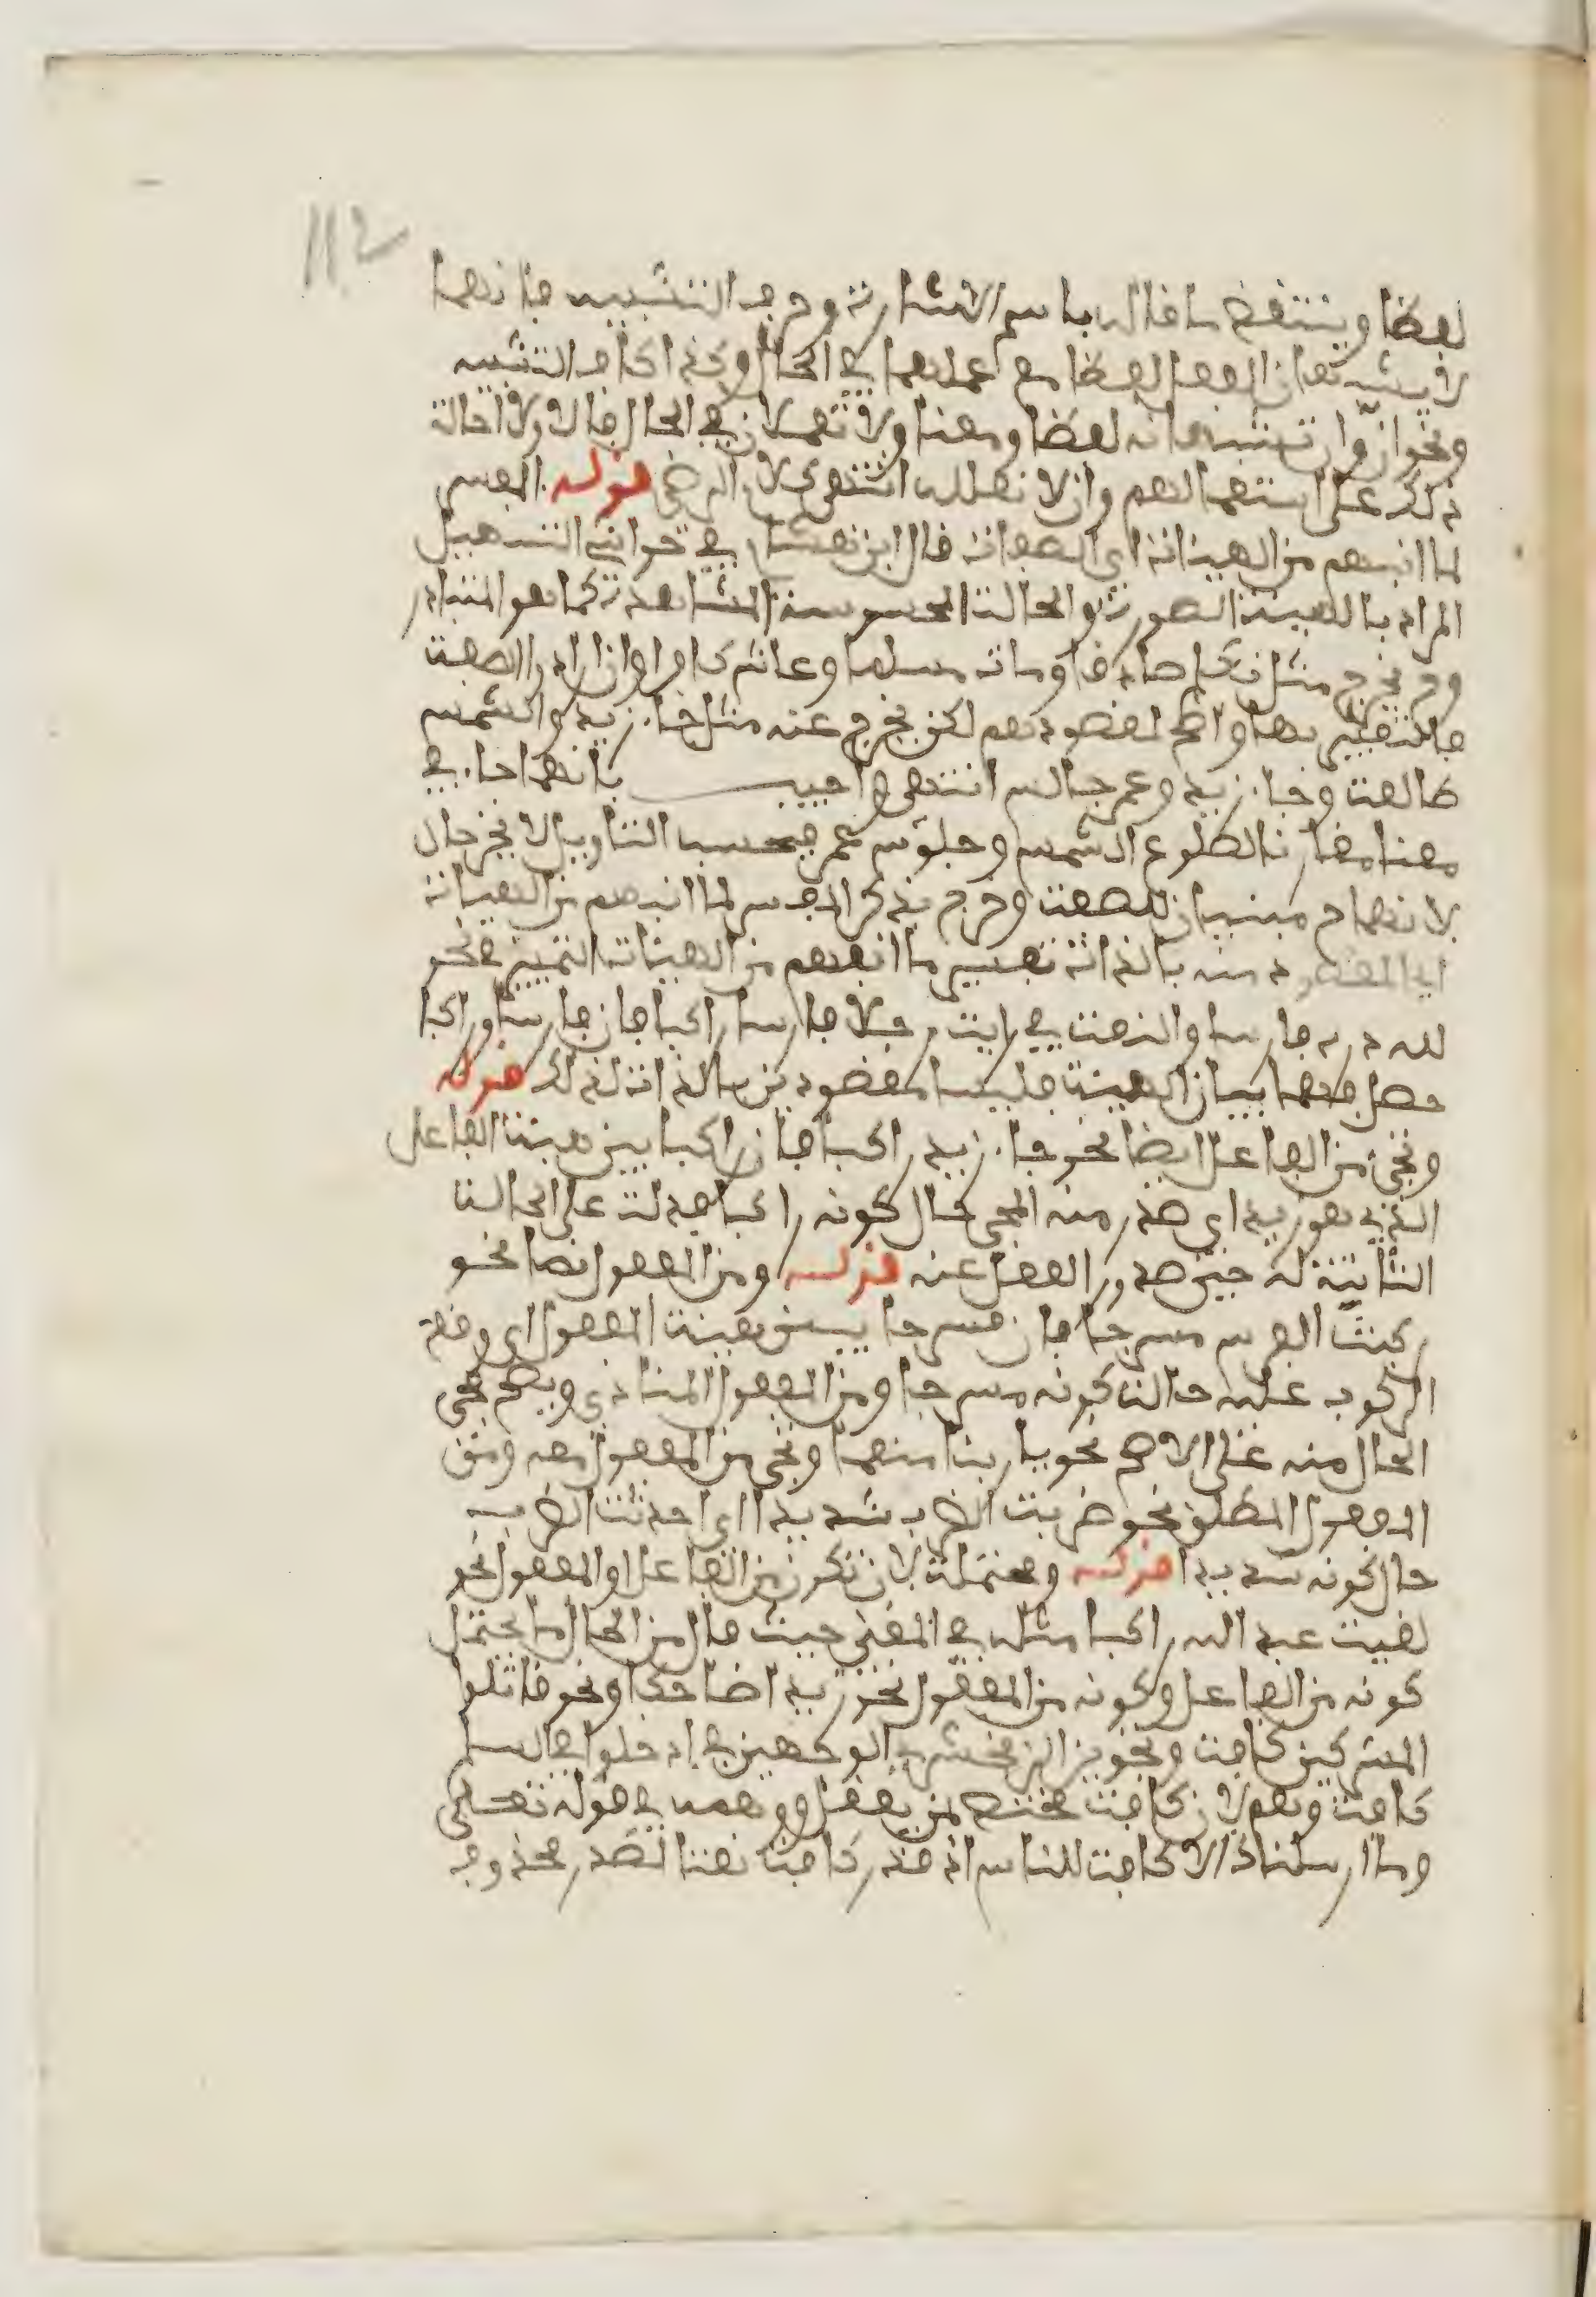 112
لفظا وينتقض ما قاله باسم الاشارة وحرف التنبيه فانهما
لا يشبهان الفعل لفظا مع عملهما في الحال وكذا كاف التشبيه
ونحو انّ وان تشبهانه لفظا ومعنا ولا تعملان في الحال فالاولى احالة
ذلك على استعمالهم وان لا نعلله انتهى كلام الرضي قوله المفسر
لما انبهم من الهيئات اي الصفات قال ابن هشام في حواشي التسهيل
المراد بالهيئة الصورة والحالة المحسوسة المشاهدة كما هو المتبادر
وح يخرج مثل تكلم صادقا ومات مسلما وعاش كافرا وان اراد الصفة
فالتعبير بها واضح لمقصودهم لكن يخرج عنه مثل جاء زيد والشمس
طالعة وجاء زيد وعمر جالس انتهى واجيب بانهما جاء في
معنا مقارنا لطلوع الشمس وجلوس عمر فبحسب التاويل لا يخرجان
لانهما ح مبنيان للصفة وخرج بذكر المفسر لما انبهم من الهيئات
اي المقصود منه بالذات تفسير ما انبهم من الهيئات التمييز في نحو
لله دره فارسا والنعت في رايت رجلا فارسا راكبا فان فارسا وراكبا
حصل فيهما بيان الهيئة فليسا مقصودين بالذات لذلك قوله
وتجيء من الفاعل ايضا نحو جاء زيد راكبا فان راكبا يبين هيئة الفاعل
الذي هو زيد اي صدر منه المجيء حال كونه راكبا فدلت على الحالة
الثابتة له حين صدور الفعل عنه قوله ومن المفعول نصا نحو
ركبت الفرس مسرجا فان مسرجا يبين هيئة المفعول اي وقع
الركوب عليه حالة كونه مسرجا ومن المفعول المنادى ويصح مجيء
الحال منه على الاصح نحو يا ربنا منعما وتجيء من المفعول معه ومن
المفعول المطلق نحو ضربت الضرب شديدا اي احدثت الضرب
حال كونه شديدا قوله ومحتملة لان تكون من الفاعل او المفعول نحو
لقيت عبد الله راكبا مثله في المغني حيث قال من الحال ما يحتمل
كونه من الفاعل وكونه من المفعول نحو زيدا ضاحكا ونحو قاتلوا
المشركين كافة وتجويز الزمخشري الوجهين في ادخلوا في السلم
كافة وهم لان كافة مختص لمن يعقل ووهمه في قوله تعالى
وما ارسلناك الا كافة للناس اذ قدر كافة نعتا لمصدر محذوف